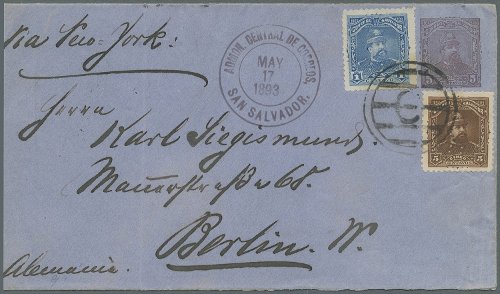 via New-York:
ADMON. CENTRAL DE CORREOS.
MAY
17
1893
SAN SALVADOR.
1 1
5 5
5 5
Herrn
Karl Siegismund.
Mauerstraße 68.
Berlin. W.
Alemania.